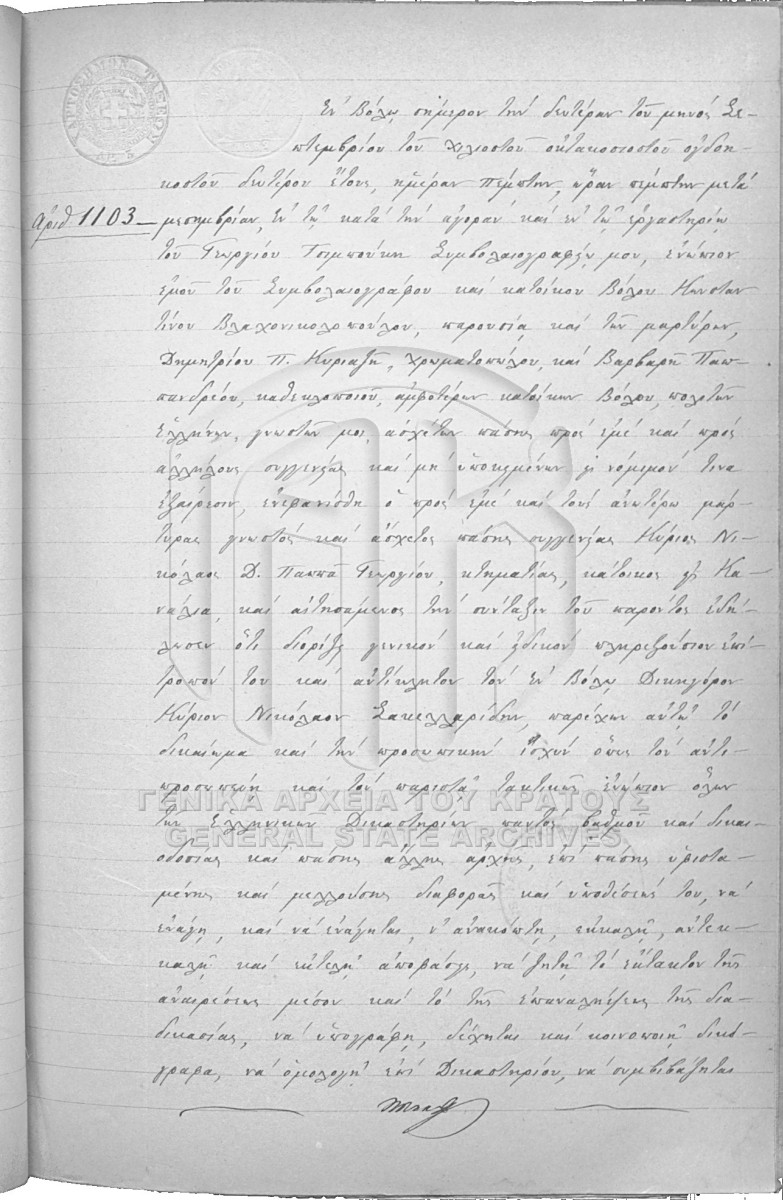 ΧΑΡΤΟΣΗΜΟΝ
Ἐν Βόλῳ σήμερον τήν δευτέραν τοῦ μηνός Σε-
πτεμβρίου τοῦ χιλιοστοῦ οκτακοσιοστοῦ ογδοη-
κοστοῦ δευτέρου ἔτους, ἡμέραν Πέμπτην, ὥραν πέμπτην μετά
Ἀριθ 1103 - μεσημβρίαν, ἐν τῷ κατά τήν ἀγοράν καί ἐν τῷ ἐργαστηρίῳ
τοῦ Γεωργίου Τσιμπούκη Συμβολαιογραφείῳ μου, ἐνώπιον
ἐμοῦ τοῦ Συμβολαιογράφου καί κατοίκου Βόλου Κωνσταν
τίνου Βλαχονικολοπούλου, παρουσίᾳ καί τῶν μαρτύρων,
Δημητρίου Π. Κυριαζῆ, χρωματοπώλου, καί Βαρβαρῆ Παπ-
πανδρέου, καθεκλοποιοῦ, ἀμφοτέρων κατοίκων Βόλου, πολιτῶν
Ἑλλήνων, γνωστῶν μοι, ἀσχέτων πάσης πρός ἐμέ καί πρός
ἀλλήλους συγγενείας καί μή ὑποκειμένων εἰς νόμιμόν τινα
ἐξαίρεσιν, ἐνεφανίσθη ὁ πρός ἐμέ καί τούς ἀνωτέρω μάρ-
τυρας γνωστός καί ἄσχετος πάσης συγγενείας Κύριος Νι-
κόλαος Δ. Παππᾶ Γεωργίου, κτηματίας, κάτοικος εἰς Κα-
νάλια, καί αἰτησάμενος τήν σύνταξιν τοῦ παρόντος ἐδή-
λωσεν ὅτι διορίζει γενικόν καί εἰδικόν πληρεξούσιον ἐπί-
τροπόν του καί ἀντίκλητον τόν ἐν Βόλῳ Δικηγόρον
Κύριον Νικόλαον Σακελλαρίδην, παρέχων αὐτῷ τό
δικαίωμα καί τήν προσωπικήν ἰσχύν ὅπως τόν ἀντι-
προσωπεύῃ καί τόν παριστᾷ τακτικῶς ἐνώπιον ὅλων
ΓΕΝΙΚΑ ΑΡΧΕΙΑ ΤΟΥ ΚΡΑΤΟΥΣ
τῶν Ἑλληνικῶν Δικαστηρίων παντός βαθμοῦ καί δικαι-
GENERAL STATE ARCHIVES
οδοσίας καί πάσης ἄλλης ἀρχῆς, ἐπί πάσης ὑφιστα-
μένης καί μελλούσης διαφορᾶς καί ὑποθέσεώς του, νά
ἐνάγῃ, καί νά ἐνάγηται, ν' ἀνακόπτῃ, ἐκκαλῇ, ἀντεκ-
καλῇ καί ἐκτελῇ ἀποφάσεις, νά ζητῇ τό ἔκτακτον τῆς
ἀναιρέσεως μέσον καί τό τῆς ἐπαναλήψεως τῆς δια-
δικασίας, νά ὑπογράφῃ, δέχηται καί κοινοποιῇ δικό-
γραφα, νά ὁμολογῇ ἐπί Δικαστηρίου, νά συμβιβάζηται